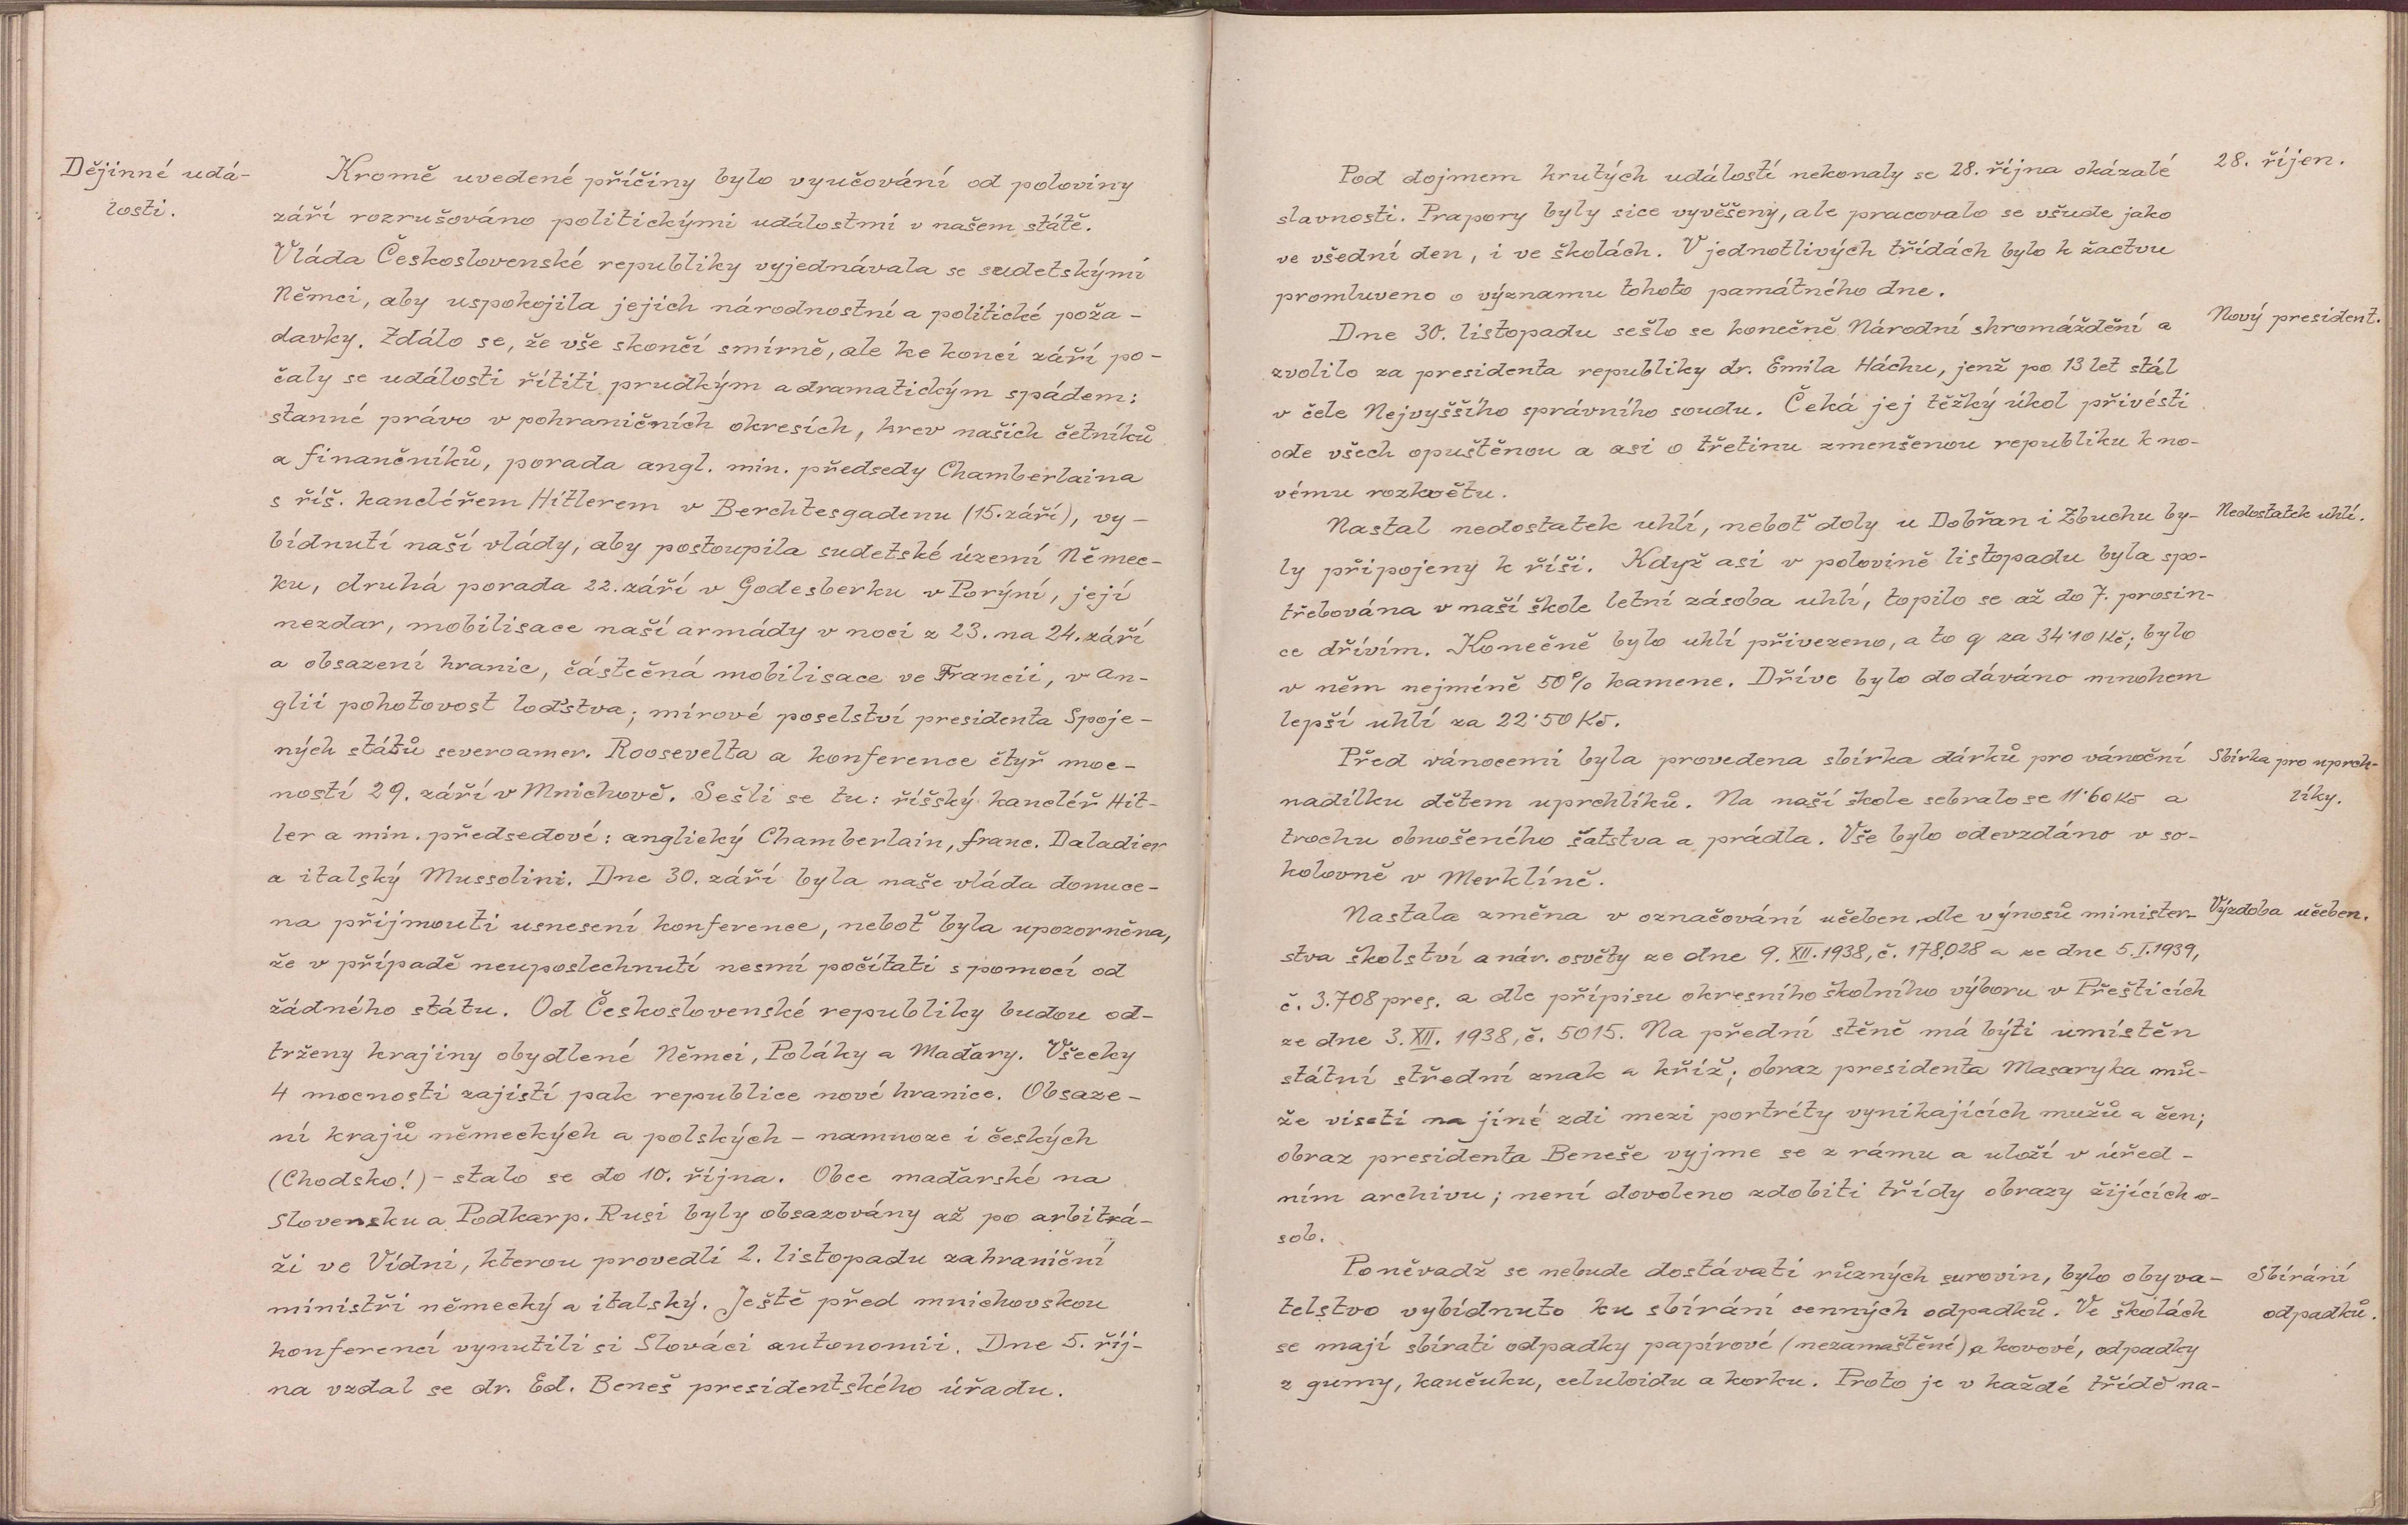 Dějinné udá-
losti.
Kromě uvedené příčiny bylo vyučování od poloviny
září rozrušováno politickými událostmi v našem státě.
Vláda Československé republiky vyjednávala se sudetskými
Němci, aby uspokojila jejich národnostní a politické poža-
davky. Zdálo se, že vše skončí smírně, ale ke konci září po-
čaly se události řítiti prudkým a dramatickým spádem:
stanné právo v pohraničních okresích, krev našich četníků
a finančníků, porada angl. min. předsedy Chamberlaina
s říš. kancléřem Hitlerem v Berchtesgadenu (15. září), vy-
bídnutí naší vlády, aby postoupila sudetské území Němec-
ku, druhá porada 22. září v Godesberku v Porýní, její
nezdar, mobilisace naší armády v noci z 23. na 24. září
a obsazení hranic, částečná mobilisace ve Francii, v An-
glii pohotovost loďstva; mírové poselství presidenta Spoje-
ných států severoamer. Roosevelta a konference čtyř moc-
ností 29. září v Mnichově. Sešli se tu: říšský kancléř Hit-
ler a min. předsedové: anglický Chamberlain, franc. Daladier
a italský Mussolini. Dne 30. září byla naše vláda donuce-
na přijmouti usnesení konference, neboť byla upozorněna,
že v případě neuposlechnutí nesmí počítati s pomocí od
žádného státu. Od Československé republiky budou od-
trženy krajiny obydlené Němci, Poláky a Maďary. Všecky
4 mocnosti zajistí pak republice nové hranice. Obsaze-
ní krajů německých a polských - namnoze i českých
(Chodsko!) - stalo se do 10. října. Obce maďarské na
Slovensku a Podkarp. Rusi byly obsazovány až po arbitrá-
ži ve Vídni, kterou provedli 2. listopadu zahraniční
ministři německý a italský. Ještě před mnichovskou
konferencí vynutili si Slováci autonomii. Dne 5. říj-
na vzdal se dr. Ed. Beneš presidentského úřadu.
Pod dojmem krutých událostí nekonaly se 28. října okázalé
28. říjen.
slavnosti. Prapory byly sice vyvěšeny, ale pracovalo se všude jako
ve všední den, i ve školách. V jednotlivých třídách bylo k žactvu
promluveno o významu tohoto památného dne.
Dne 30. listopadu sešlo se konečně Národní shromáždění a
Nový president.
zvolilo za presidenta republiky dr. Emila Háchu, jenž po 13 let stál
v čele Nejvyššího správního soudu. Čeká jej těžký úkol přivésti
ode všech opuštěnou a asi o třetinu zmenšenou republiku k no-
vému rozkvětu.
Nastal nedostatek uhlí, neboť doly u Dobřan i Zbuchu by-
Nedostatek uhlí.
ly připojeny k říši. Když asi v polovině listopadu byla spo-
třebována v naší škole letní zásoba uhlí, topilo se až do 7. prosin-
ce dřívím. Konečně bylo uhlí přivezeno, a to q za 34·10 Kč; bylo
v něm nejméně 50% kamene. Dříve bylo dodáváno mnohem
lepší uhlí za 22·50 Kč.
Před vánocemi byla provedena sbírka dárků pro vánoční
Sbírka pro uprch-
nadílku dětem uprchlíků. Na naší škole sebralo se 11·60 Kč a
líky.
trochu obnošeného šatstva a prádla. Vše bylo odevzdáno v so-
kolovně v Merklíně.
Nastala změna v označování učeben dle výnosů minister-
Výzdoba učeben.
stva školství a nár. osvěty ze dne 9. XII. 1938, č. 178.028 a ze dne 5. I. 1939,
č. 3.708 pres. a dle přípisu okresního školního výboru v Přešticích
ze dne 3. XII. 1938, č. 5015. Na přední stěně má býti umístěn
státní střední znak a kříž; obraz presidenta Masaryka mů-
že viseti na jiné zdi mezi portréty vynikajících mužů a žen;
obraz presidenta Beneše vyjme se z rámu a uloží v úřed-
ním archivu; není dovoleno zdobiti třídy obrazy žijících o-
sob.
Poněvadž se nebude dostávati různých surovin, bylo obyva-
Sbírání
telstvo vybídnuto ku sbírání cenných odpadků. Ve školách
odpadků.
se mají sbírati odpadky papírové (nezamaštěné) a kovové, odpadky
z gumy, kaučuku, celuloidu a korku. Proto je v každé třídě na-